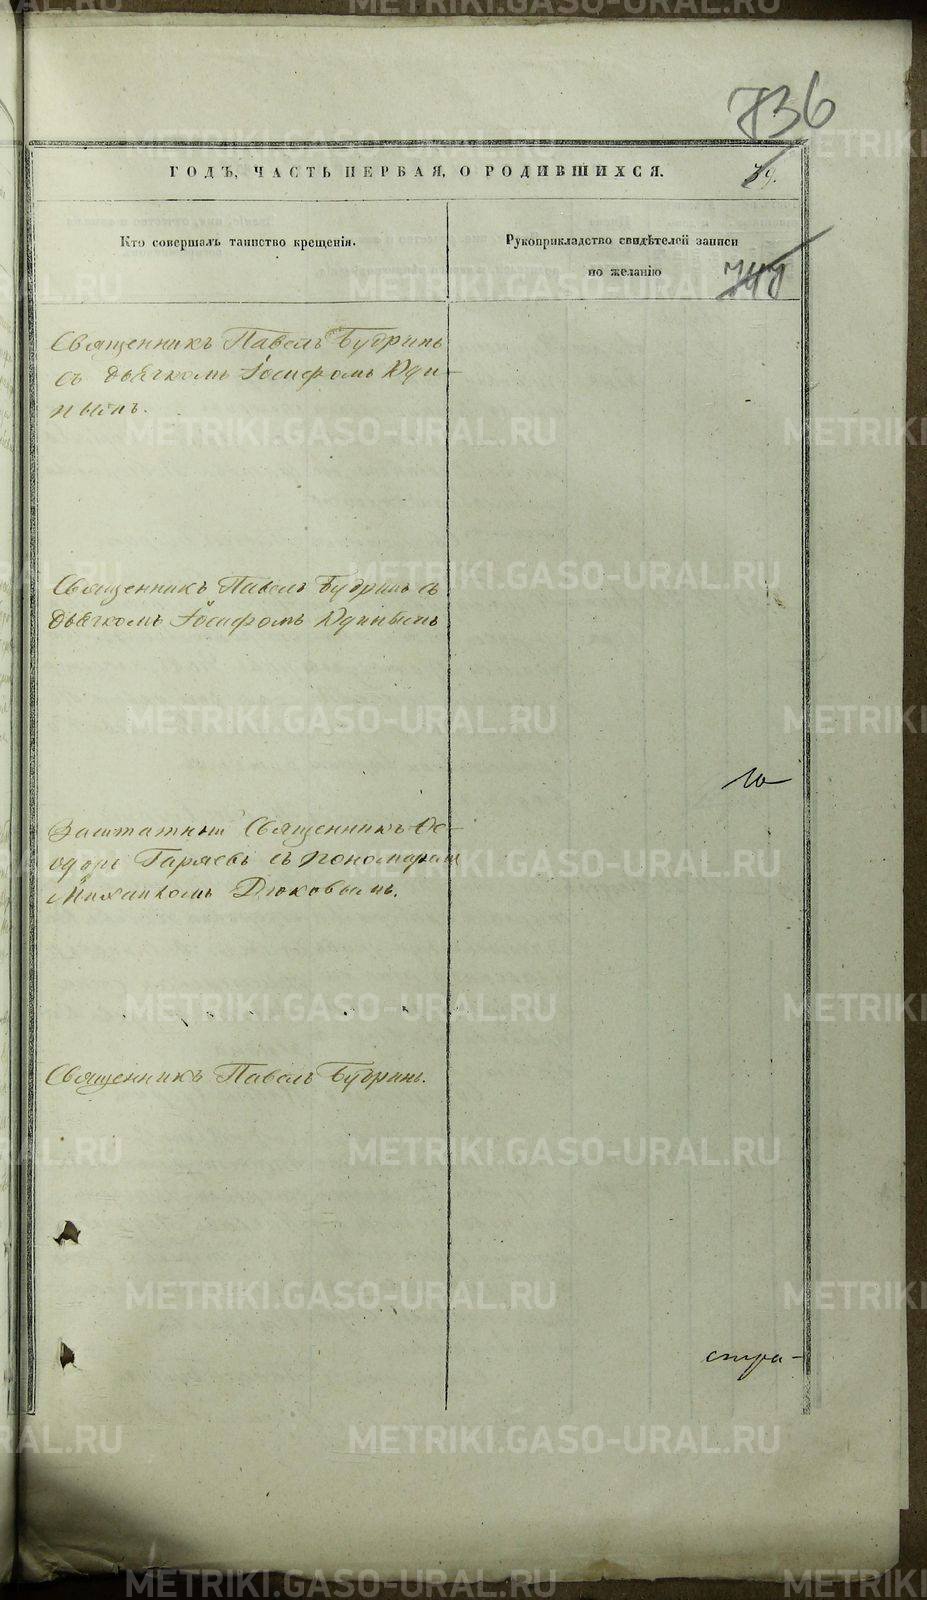 736
ГОДЪ, ЧАСТЬ ПЕРВАЯ, О РОДИВШИХСЯ.
Кто совершалъ таинство крещенія.
Рукоприкладство свидѣтелей записи
по желанію
Священникъ Павелъ Бубринъ
съ дьячкомъ Іосифомъ Юди-
нымъ.
Священникъ Павелъ Бубринъ съ
дьячкомъ Іосифомъ Юдинымъ
Заштатный Священникъ Ѳе-
одоръ Гаряевъ съ пономаремъ
Михаиломъ Дюковымъ.
Священникъ Павелъ Бубринъ.
METRIKI.GASO-URAL.RU